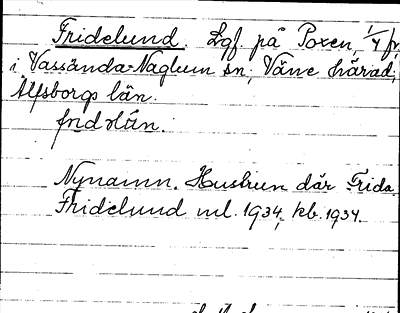 Fridelund. Lgf. på Poxen, 1/4 fr.
i Vassända-Naglum sn, Väne härad,
Älfsborgs län.
Nynamn. Hustrun där Frida.
Fridelund ml. 1934, kb. 1934.